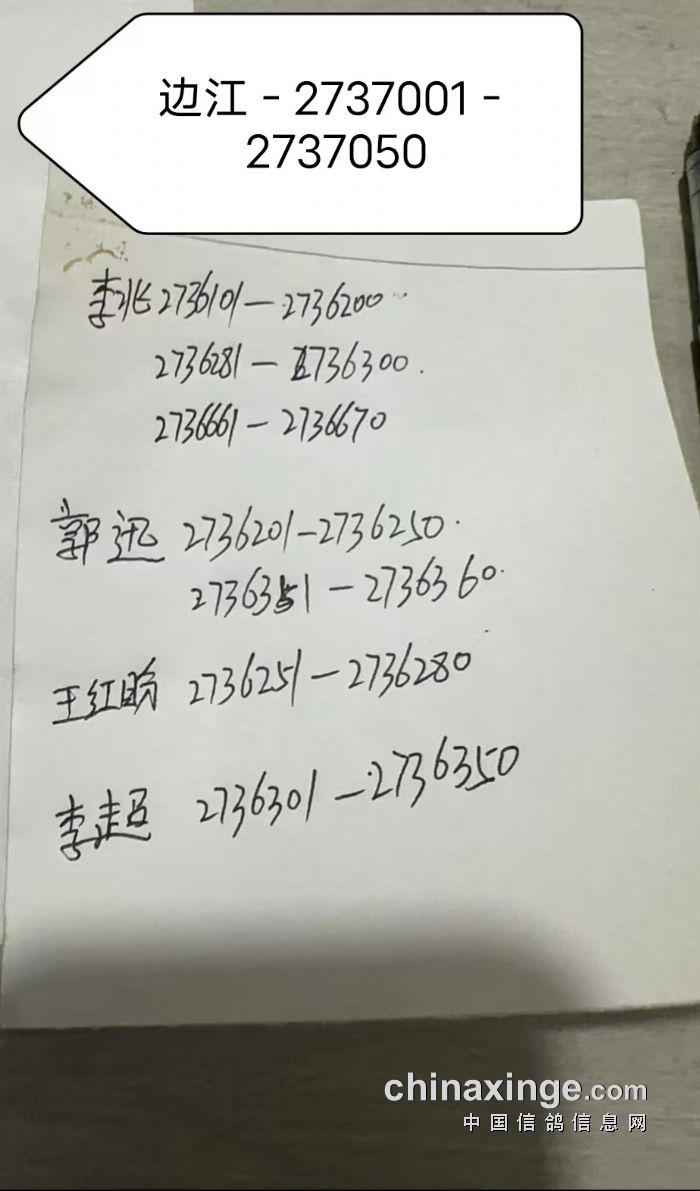 边江 - 2737001 -
2737050
李兆 2736101—2736200
2736281—2736300.
2736661—2736670
郭迅 2736201—2736250.
2736351—2736360.
王红 2736251—2736280
李超 2736301—2736350
chinaxinge.com
中国信鸽信息网